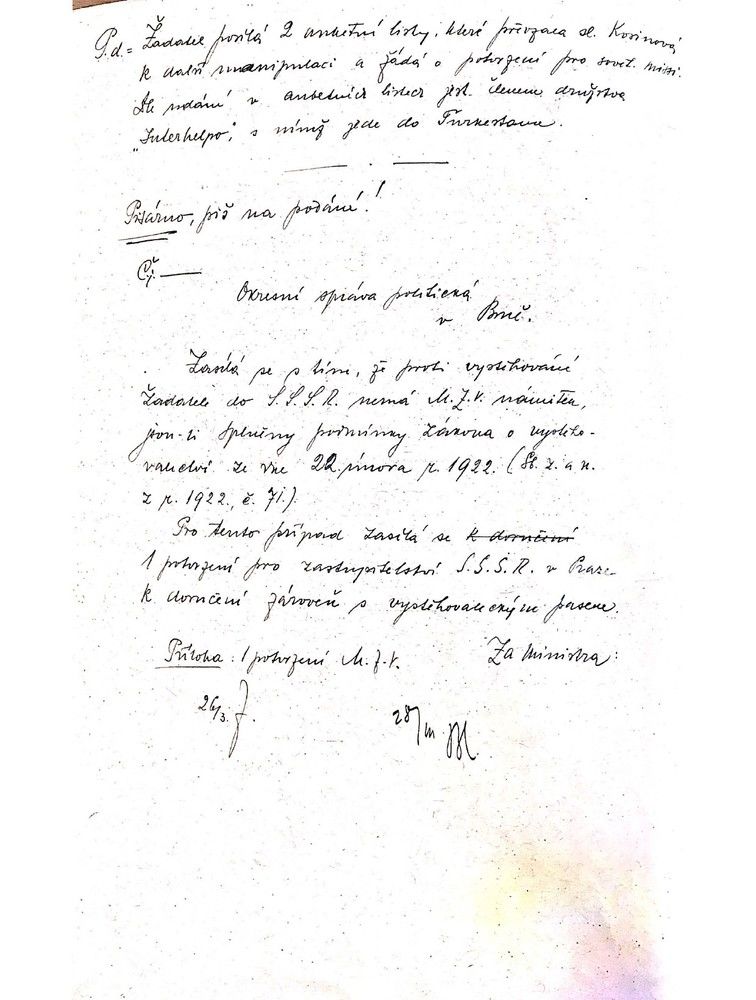 P.d. = Žadatel posílá 2 anketní listy, které převzala sl. Kosinová
k další manipulaci a žádá o potvrzení pro sovět. misi.
Dle udání v anketních listech jest členem družstva
„Interhelpo", s nímž jede do Turkestanu.
Písárno, piš na podání!
Čj. —
Okresní správa politická
v Brně.
Zasílá se s tím, že proti vystěhování
žadatele do S.S.S.R. nemá M.Z.V. námitek,
jsou-li splněny podmínky zákona o vystěho-
valectví ze dne 22. února r. 1922. (Sb. z. a n.
z r. 1922, č. 71.)
Pro tento případ zasílá se k doručení
1 potvrzení pro zastupitelství S.S.S.R. v Praze
k doručení zároveň s vystěhovaleckým pasem.
Příloha: 1 potvrzení M.Z.V. Za ministra:
26/3. 28/III